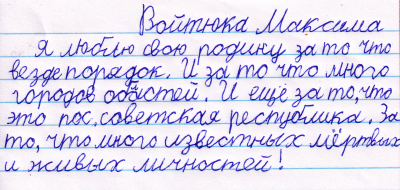 Войтюка Максима
Я люблю свою родину за то что
везде порядок. И за то что много
городов областей. И ещё за то, что
это пос. советская республика. За
то, что много известных мёртвых
и живых личностей!